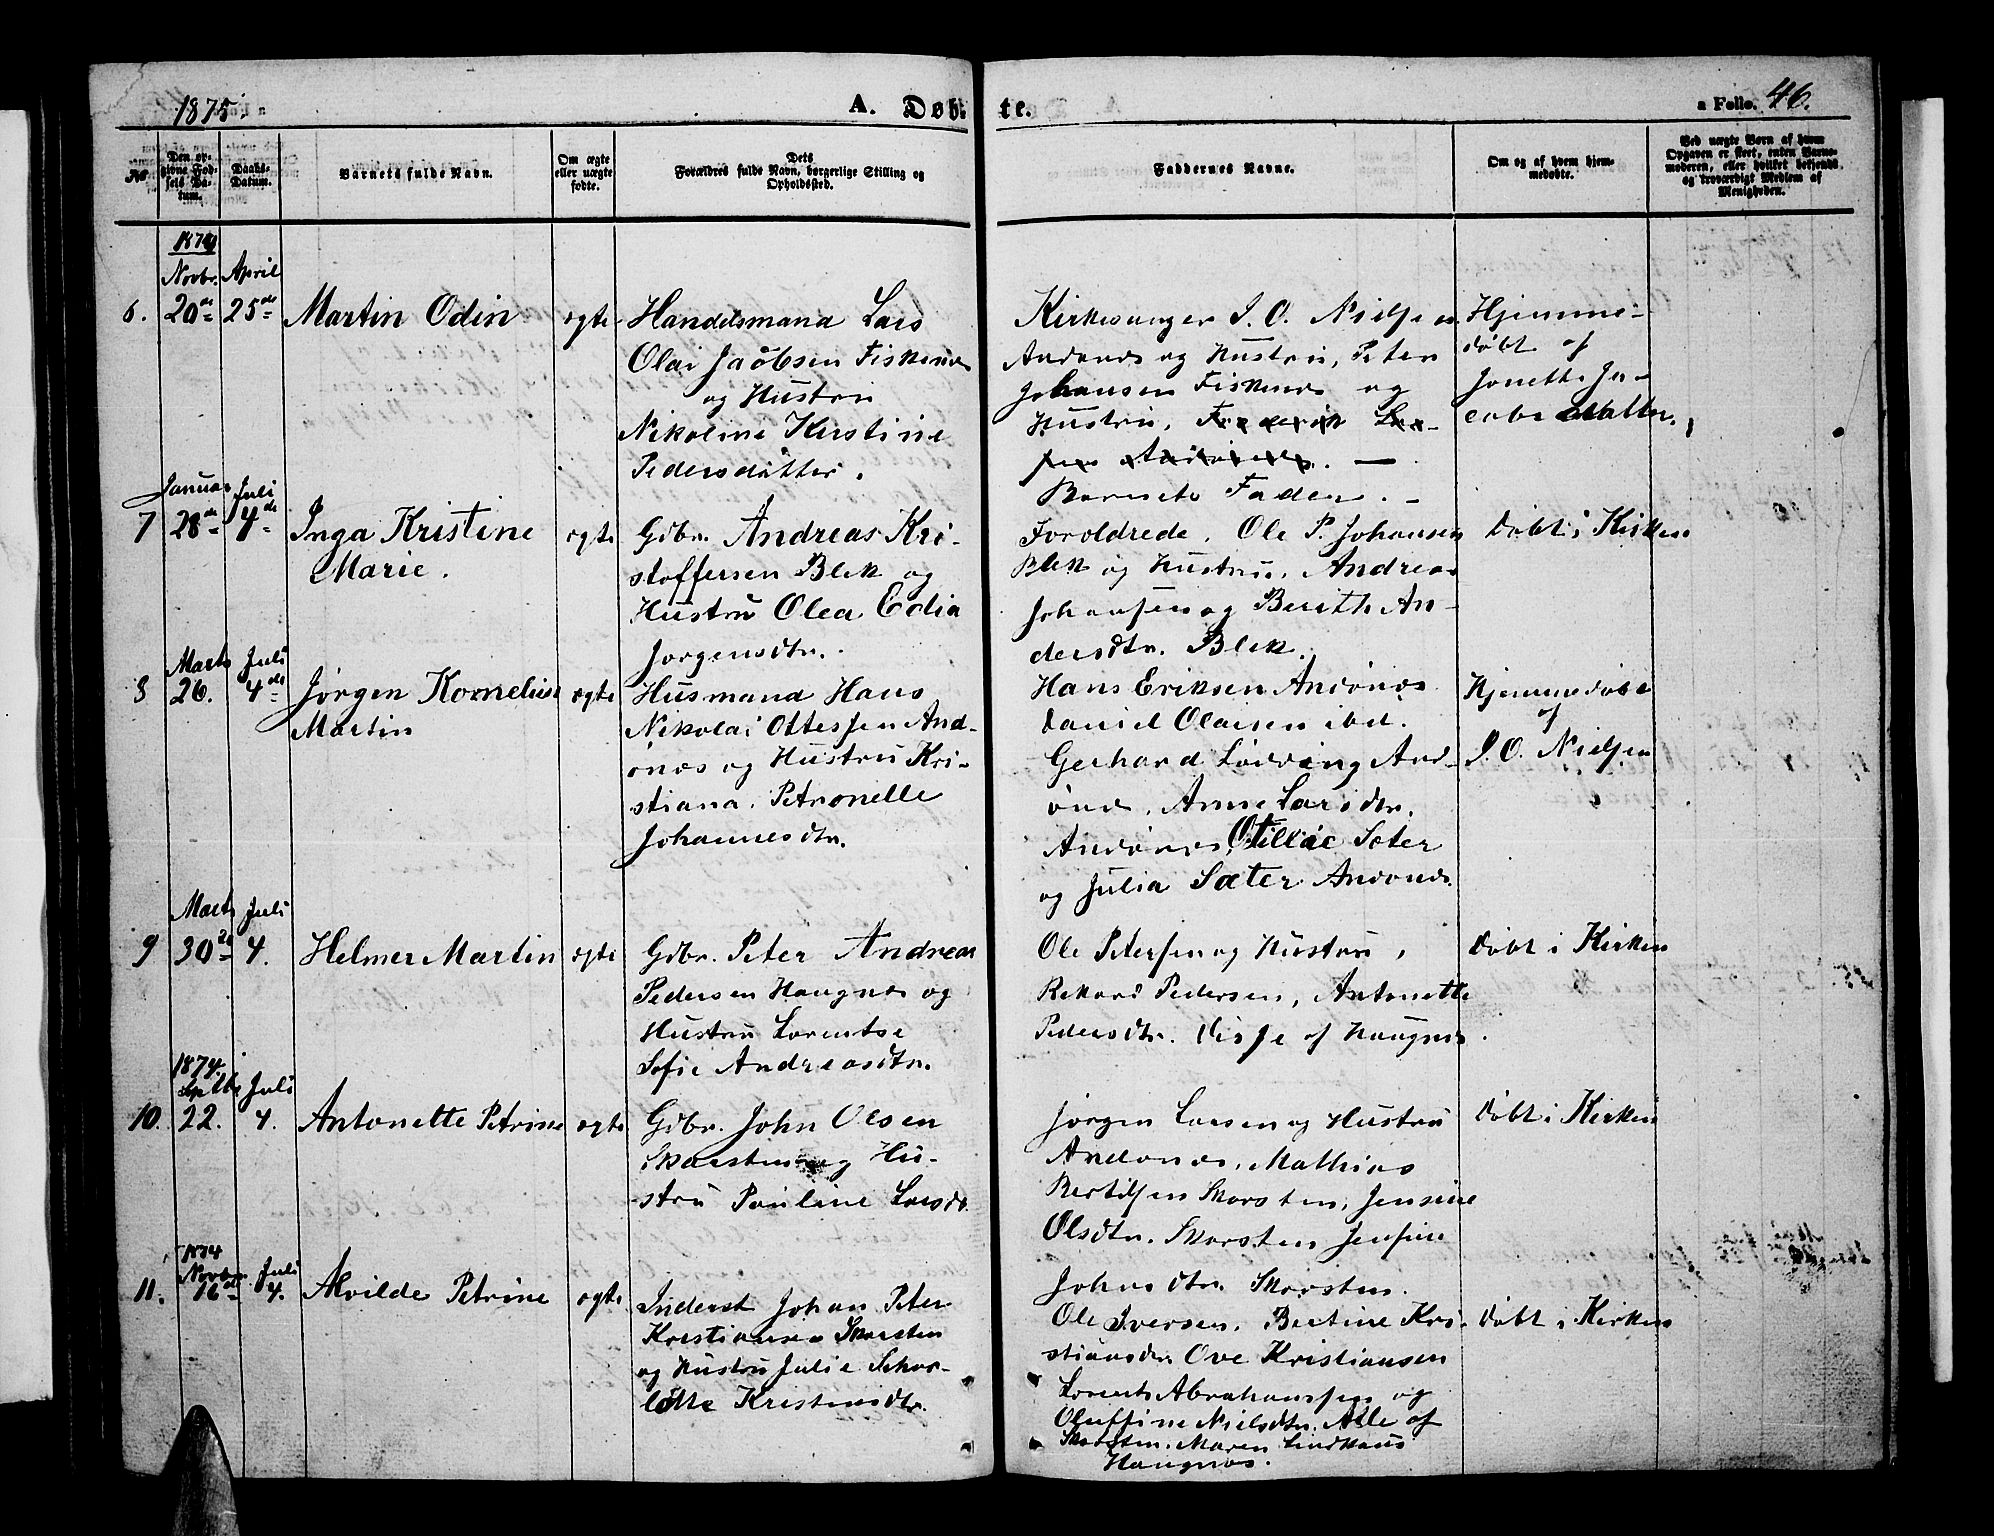 1875.
A. Døb-
te.
a Folio. 46.
No
Den op-
givne Fød-
sels Da-
tum.
Daabs-
Datum.
Barnets fulde Navn.
Om ægte
eller uægte
fødte.
Dets
Forældres fulde Navn, borgerlige Stilling og
Opholdssted.
Faddernes Navne.
Om og af hvem hjem-
medøbte.
Ved uægte Børn af hvem
Opgaven er skeet, enten Barne-
moderen, eller hvilket bekjendt
og troværdigt Medlem af
Menigheden.
1874
Novbr.
April
6.
20de
25de
Martin Odin
ægte
Handelsmand Lars
Olai Jacobsen Fiskenes
og Hustru
Nikoline Kristine
Pedersdatter.
Kirkesanger I. O. Nielsen
Andønes og Hustru, Peter
Johansen Fiskenes og
Hustru,
Barnets Fader. -
Hjemme-
døbt af
Jonette Ja-
cobsdatter.
Januar
Juli
7
28de
4de
Inga Kristine
Marie.
ægte
Gdbr. Andreas Kri-
stoffersen Blek og
Hustru Olea Edia
Jørgensdtr.
Forældrede. Ole P. Johansen
Blek og Hustru, Andreas
Johansen og Berith An-
dersdtr. Blek.
Døbt i Kirken
Marts
Juli
8
26.
4de
Jørgen Kornelius
Martin
ægte
Husmand Hans
Nikolai Ottessen And-
ønes og Hustru Kri-
stiana Petronelle
Johannesdtr.
Hans Eriksen Andønes
Daniel Olaisen ibd.
Gerhard Lødving And-
ønes, Anne Larsdtr.
Andønes, Otillie Sæter
og Julia Sæter Andønes.
Hjemmedøbt
af
I. O. Nielsen
Marts
Juli
9
30te
4.
Helmer Martin
ægte
Gdbr. Peter Andreas
Pedersen Haugnes og
Hustru Lorentse
Sofie Andreasdtr.
Ole Petersen og Hustru,
Rekard Pedersen, Antonette
Pedersdtr. Disse af Haugnes.
Døbt i Kirken
1874.
Septbr
Juli
10.
22.
4.
Antonette Petrine
ægte
Gdbr. John Olsen
Skarsten og Hu-
stru Pauline Larsdtr.
Jørgen Larsen og Hustru
Andønes, Mathias
Bertilsen Skarsten, Jensine
Olsdtr. Skarsten Jensine
Johnsdtr. Skarsten.
Døbt i Kirken
1874
Novbr.
Juli
11.
16de
4.
Alvilde Petrine
ægte
Inderst Johan Peter
Kristiansen Skarsten
og Hustru Julie Schar-
lotte Kristensdtr.
Ole Iversen, Bertine Kri-
stiansdtr. Ove Kristiansen
Lorents Abrahamssen og
Oluffine Nielsdtr. Alle af
Skarsten. Maren Lindhaus
Haugnes.
Døbt i Kirken